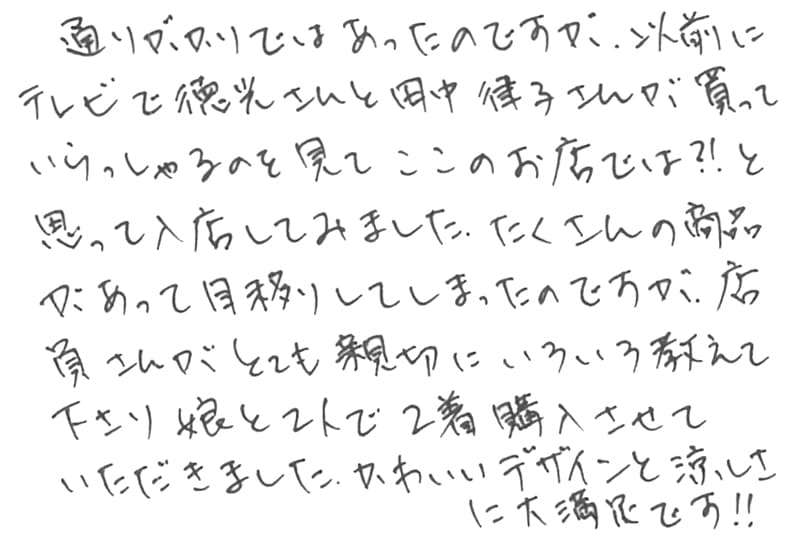 通りがかりではあったのですが、以前に
テレビで徳光さんと田中律子さんが買って
いらっしゃるのを見てここのお店では?!と
思って入店してみました。たくさんの商品
があって目移りしてしまったのですが、店
員さんがとても親切にいろいろ教えて
下さり娘と2人で2着購入させて
いただきました。かわいいデザインと涼しさ
に大満足です!!